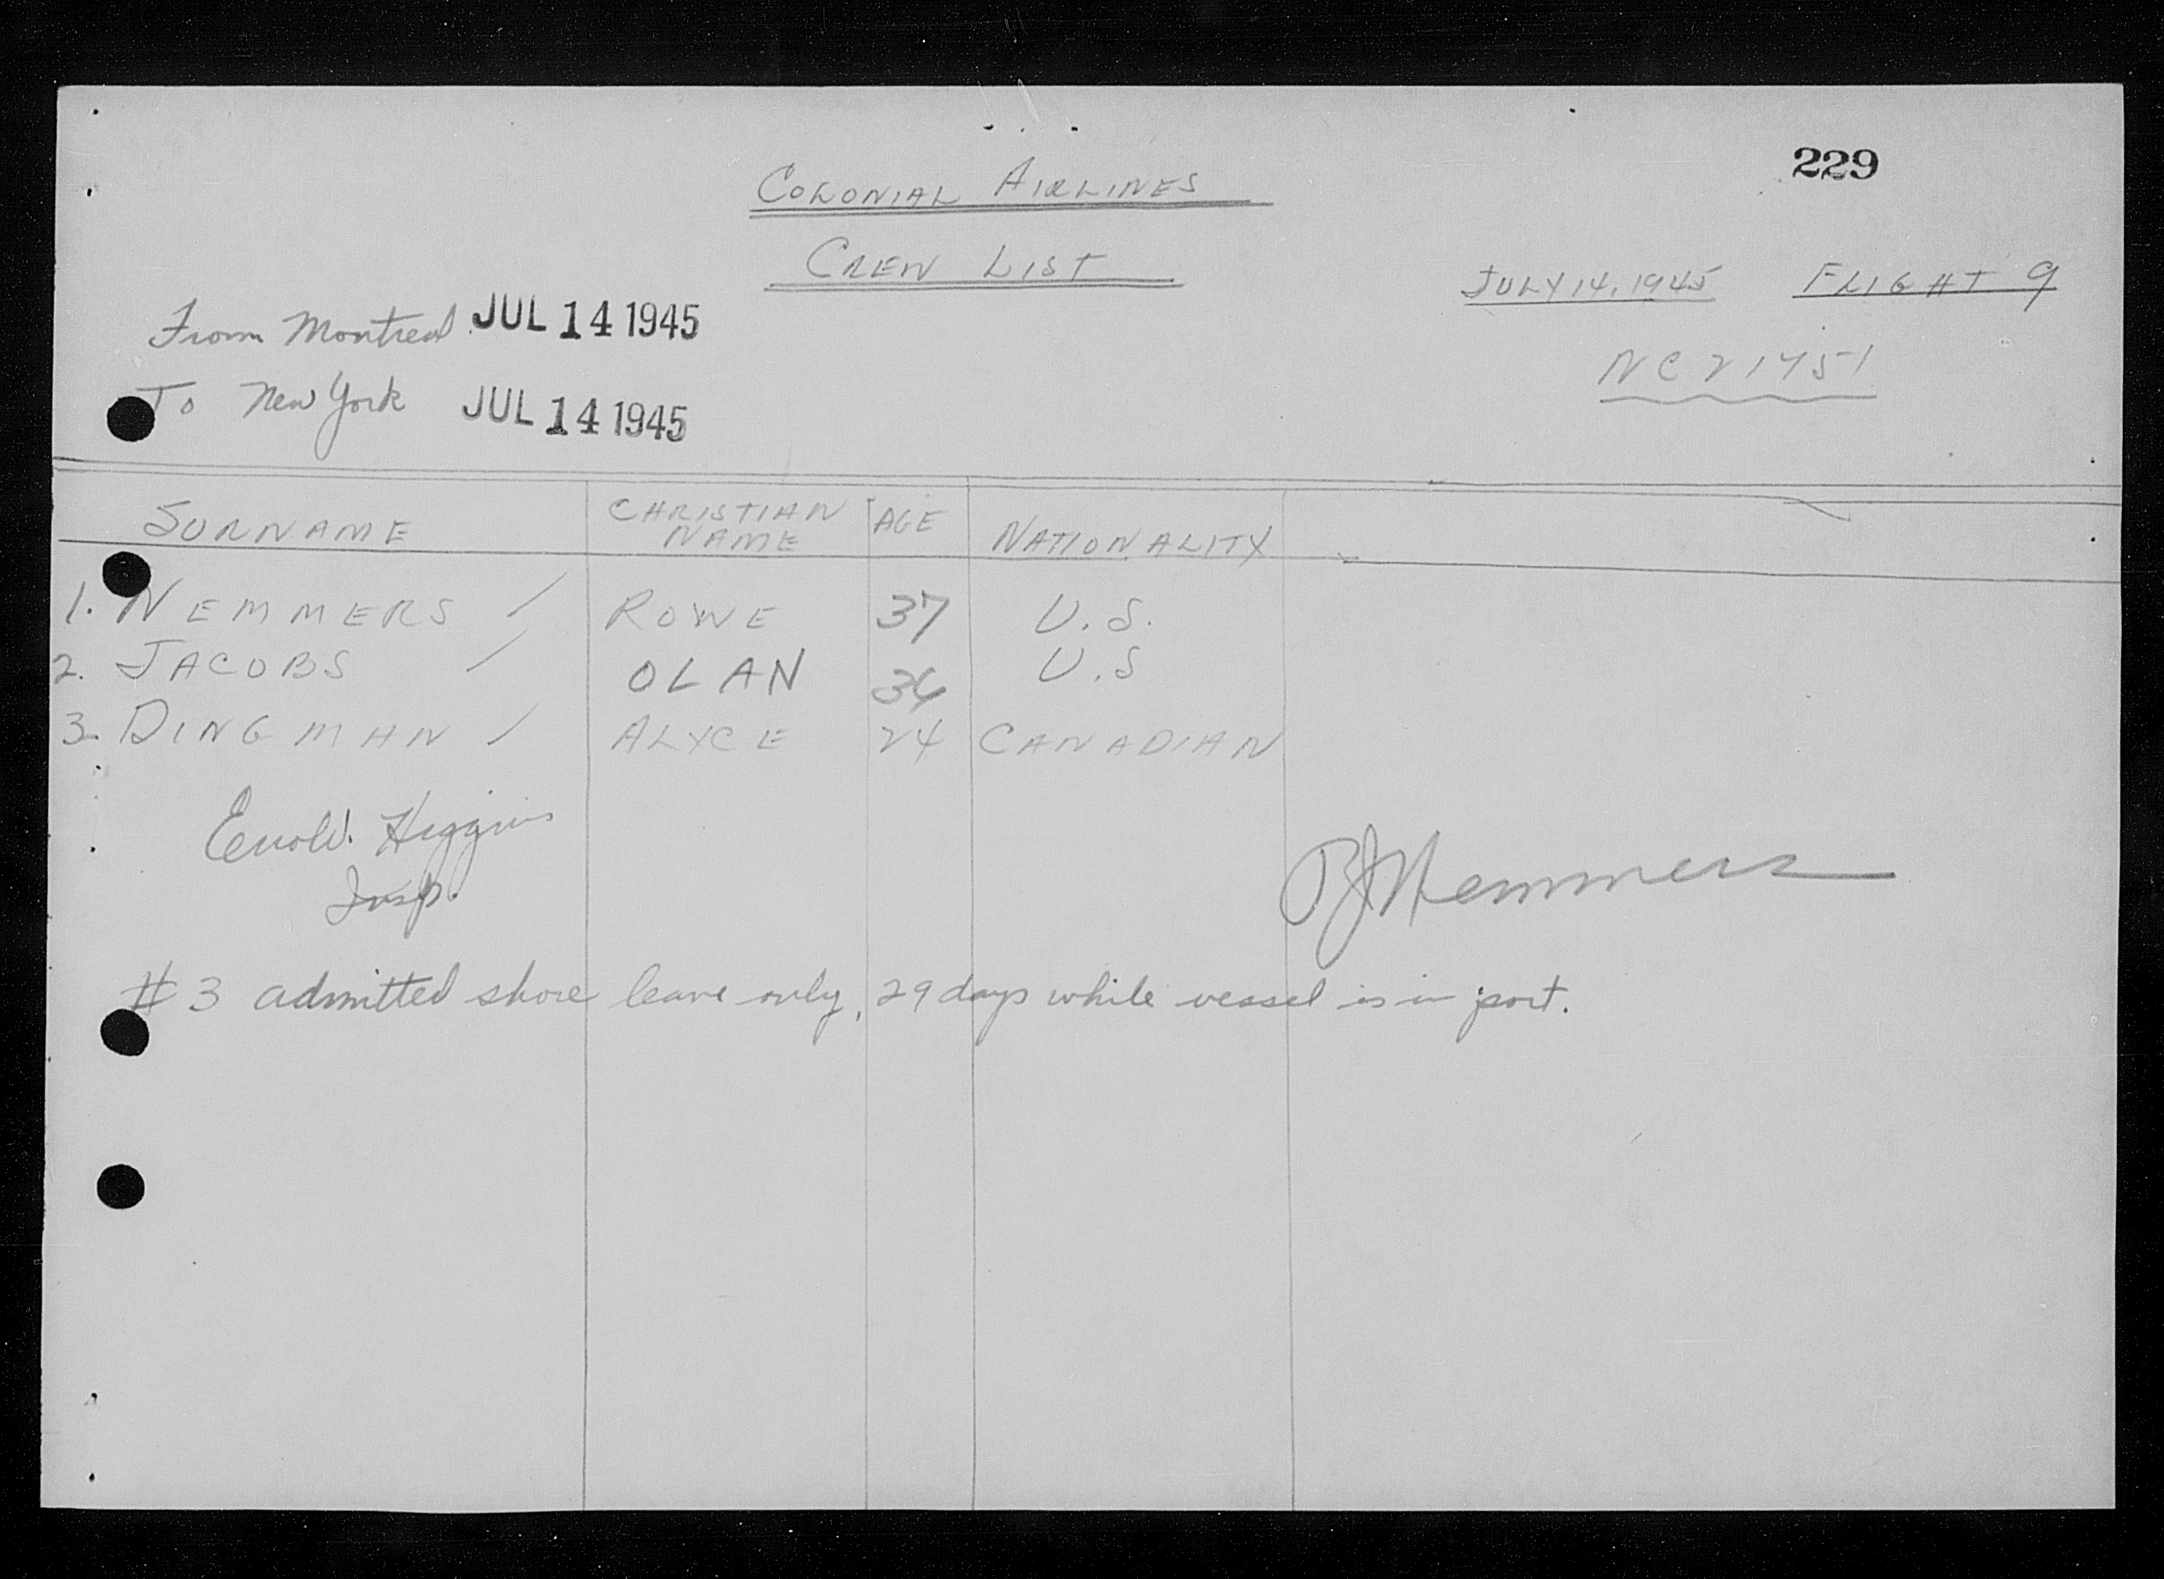 229
COLONIAL AIRLINES
CREW LIST
JULY 14, 1945 FLIGHT 9
From Montreal JUL 14 1945
NC21751
To New York JUL 14 1945
SURNAME CHRISTIAN NAME AGE NATIONALITY
1. NEMMERS / ROWE 37 U.S.
2. JACOBS / OLAN 36 U.S
3. DINGMAN / ALYCE 24 CANADIAN
Higgins
Insp.
RJNemmers
# 3 admitted shore leave only, 29 days while vessel is in port.